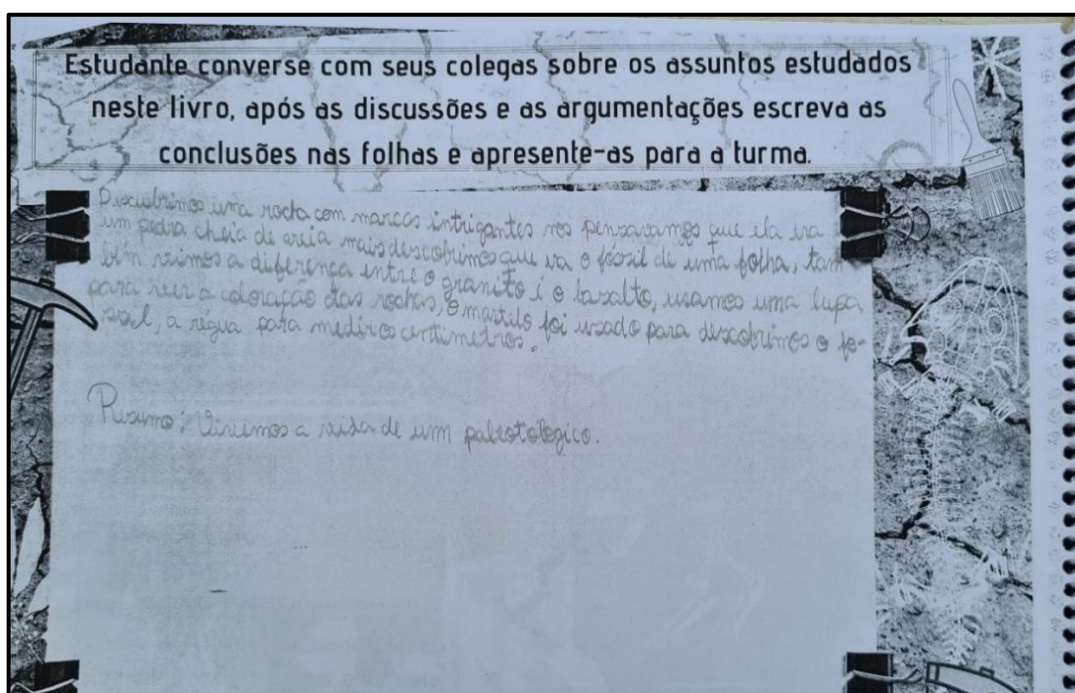 Estudante converse com seus colegas sobre os assuntos estudados
neste livro, após as discussões e as argumentações escreva as
conclusões nas folhas e apresente-as para a turma.
Descubrimos uma rocha com marcas intrigantes nos pensavamos que ela era
um pedra cheia de areia mais descobrimos que era o fóssil de uma folha, tam
bém vimos a diferença entre o granito i o basalto, usamos uma lupa
para ver a coloração das rochas, o martelo foi usado para descobrimos o fo-
ssil, a régua para medir os centimetros.
Resumo: Vivemos a vida de um paleotologico.